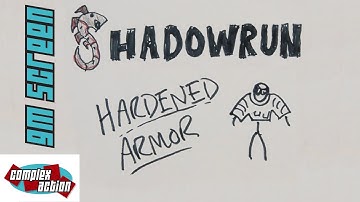 GM SCREEN
SHADOWRUN
HARDENED
ARMOR
COMPLEX
ACTION